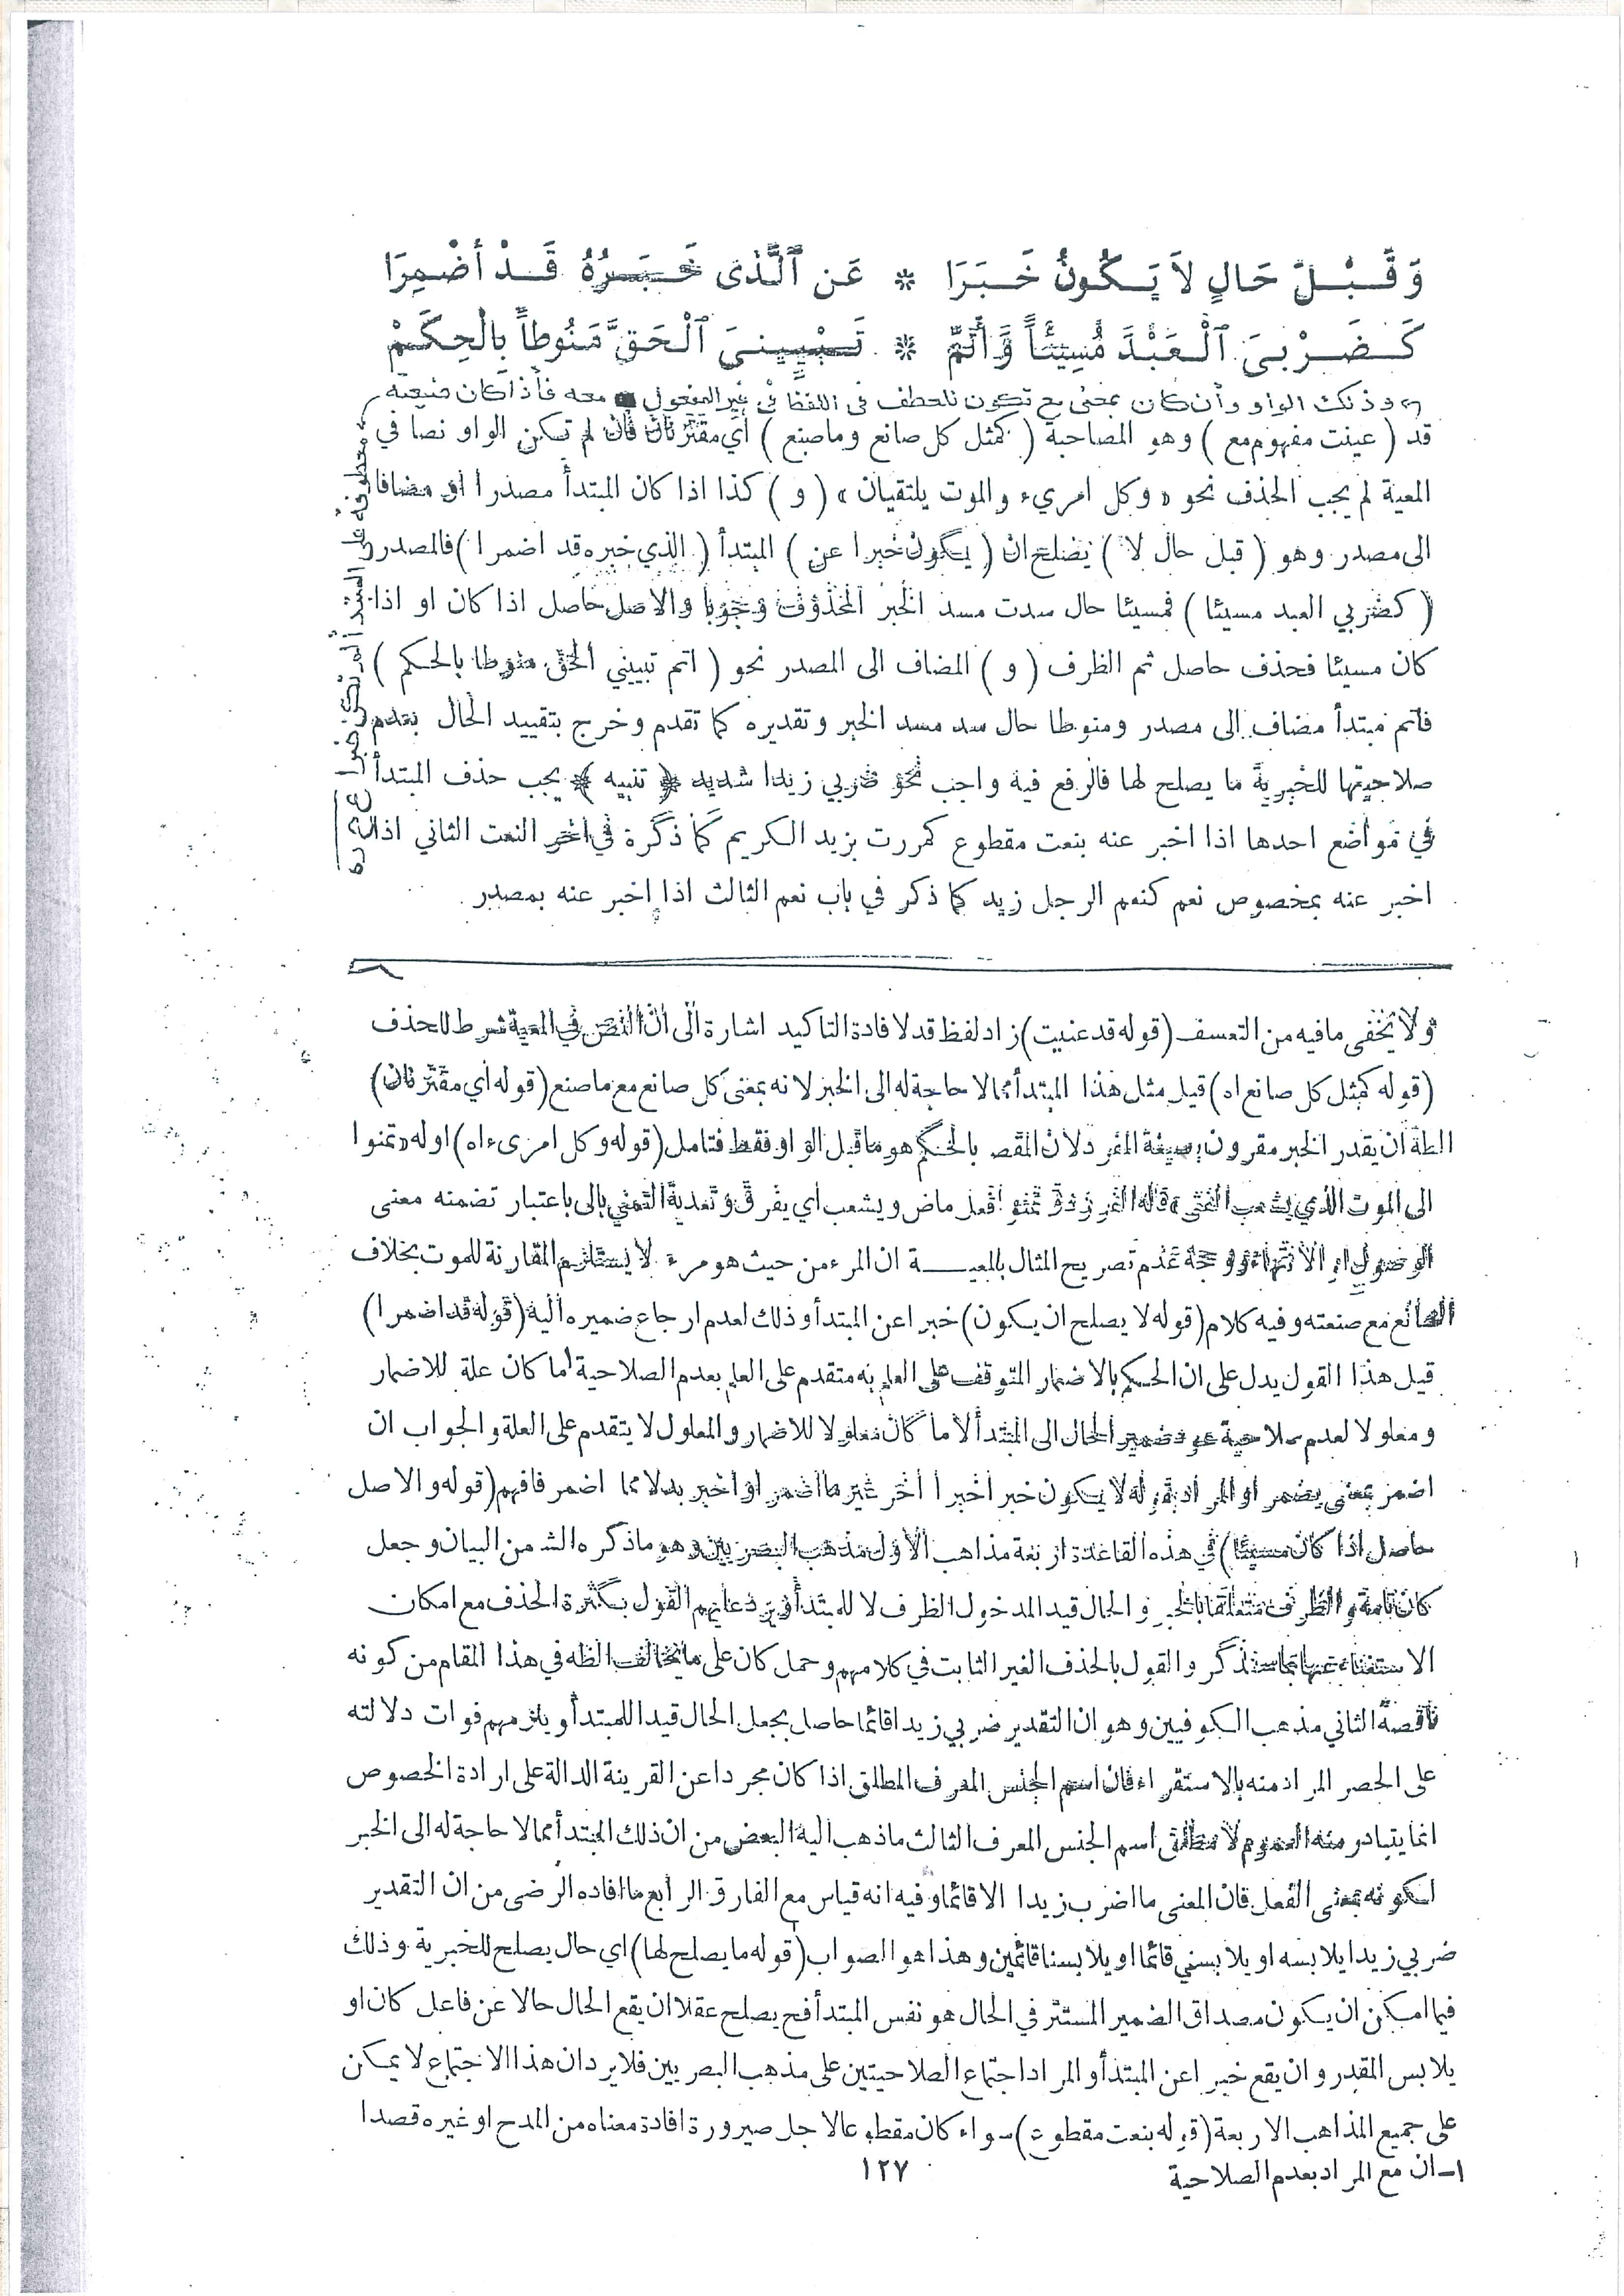 وَ قَبْلَ حَالٍ لاَ يَكُونُ خَبَرَا * عَن ٱلَّذى خَبَرُهُ قَدْ أضْمِرَا
كَضَرْبىَ ٱلْعَبْدَ مُسِيئًا وَأَتَمّ * تَبْيِينىَ ٱلْحَقَّ مَنُوطاً بِالْحِكَمْ
وذلك الواو وأن كان بمعنى مع تكون للعطف فى اللفظ فى غير المفعول معه فأذا كان ضيعته
معطوفة على المبتدأ لم تكن خبرا
قد ( عينت مفهوم مع ) وهو المصاحبة ( كمثل كل صانع وماصنع ) أي مقترنان فان لم تكن الواو نصا في
المعية لم يجب الحذف نحو « وكل امريء والموت يلتقيان » ( و ) كذا اذا كان المبتدأ مصدرا او مضافا
الى مصدر وهو ( قبل حال لا ) يصلح ان ( يكون خبرا عن ) المبتدأ ( الذي خبره قد اضمرا ) فالمصدر
( كضربي العبد مسيئا ) فمسيئا حال سدت مسد الخبر المحذوف وجوبا والاصل حاصل اذا كان او اذا
كان مسيئا فحذف حاصل ثم الظرف ( و ) المضاف الى المصدر نحو ( اتم تبييني الحق منوطا بالحكم )
فاتم مبتدأ مضاف الى مصدر ومنوطا حال سد مسد الخبر وتقديره كما تقدم وخرج بتقييد الحال بعدم
صلاحيتها للخبرية ما يصلح لها فالرفع فيه واجب نحو ضربي زيدا شديد ﴿ تنبيه ﴾ يجب حذف المبتدأ
في مواضع احدها اذا اخبر عنه بنعت مقطوع كمررت بزيد الكريم كما ذكره في اخر النعت الثاني اذا
اخبر عنه بمخصوص نعم كنعم الرجل زيد كما ذكر في باب نعم الثالث اذا اخبر عنه بمصدر
ولا يخفى مافيه من التعسف (قوله قد عنيت) زاد لفظ قد لافادة التاكيد اشارة الى ان النص في المعية شرط للحذف
(قوله كمثل كل صانع اه) قيل مثل هذا المبتدأ مما لا حاجة له الى الخبر لانه بمعنى كل صانع مع ما صنع (قوله أي مقترنان)
الظه ان يقدر الخبر مقرون بصيغة المفرد لان المقص بالحكم هو ما قبل الواو فقط فتامل (قوله وكل امرىء اه) اوله «تمنوا
الى الموت الذي يشعب الفتى» قاله الفرزدق تمنوا فعل ماض ويشعب أي يفرق وتعدية التمني بالى باعتبار تضمنه معنى
الوصول او الانتهاء ووجه عدم تصريح المثال بالمعية ان المرء من حيث هو مرء لا يستلزم المقارنة للموت بخلاف
الصانع مع صنعته وفيه كلام (قوله لا يصلح ان يكون) خبرا عن المبتدأ وذلك لعدم ارجاع ضميره اليه (قوله قد اضمرا)
قيل هذا القول يدل على ان الحكم بالاضمار المتوقف على العلم به متقدم على العلم بعدم الصلاحية¹ ما كان علة للاضمار
ومعلولا لعدم صلاحية عود ضمير الحال الى المبتدأ لا ما كان معلولا للاضمار والمعلول لا يتقدم على العلة والجواب ان
اضمر بمعنى يضمر او المراد بقوله لا يكون خبرا خبرا آخر غير ما اضمر او اخبر بدلا مما اضمر فافهم (قوله والاصل
حاصل اذا كان مسيئا) في هذه القاعدة اربعة مذاهب الاول مذهب البصريين وهو ما ذكره الشـ من البيان وجعل
كان تامة والظرف متعلقا بالخبر والحال قيد المدخول الظرف لا للمبتدأ ويرد عليهم القول بكثرة الحذف مع امكان
الاستغناء عنها بما ستذكر والقول بالحذف الغير الثابت في كلامهم وحمل كان على ما يخالف الظه في هذا المقام من كونه
ناقصة الثاني مذهب الكوفيين وهو ان التقدير ضربي زيدا قائما حاصل بجعل الحال قيدا للمبتدأ ويلزمهم فوات دلالته
على الحصر المراد منه بالاستقراء فان اسم الجنس المعرف المطلق اذا كان مجردا عن القرينة الدالة على ارادة الخصوص
انما يتبادر منه العموم لا مطلق اسم الجنس المعرف الثالث ما ذهب اليه البعض من ان ذلك المبتدأ مما لا حاجة له الى الخبر
لكونه بمعنى الفعل فان المعنى ما اضرب زيدا الا قائما وفيه انه قياس مع الفارق الرابع ما افاده الرضى من ان التقدير
ضربي زيدا يلابسه او يلابسني قائما او يلابسنا قائمين وهذا هو الصواب (قوله ما يصلح لها) اي حال يصلح للخبرية وذلك
فيما امكن ان يكون مصداق الضمير المستتر في الحال هو نفس المبتدأ فح يصلح عقلا ان يقع الحال حالا عن فاعل كان او
يلابس المقدر وان يقع خبرا عن المبتدأ والمراد اجتماع الصلاحيتين على مذهب البصريين فلا يرد ان هذا الاجتماع لا يمكن
على جميع المذاهب الاربعة (قوله بنعت مقطوع) سواء كان مقطوعا لاجل صيرورة افادة معناه من المدح او غيره قصدا
١ـ ان مع المراد بعدم الصلاحية
١٢٧